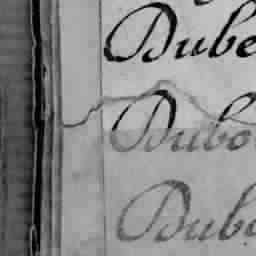 Dube
Dubo
Dubo